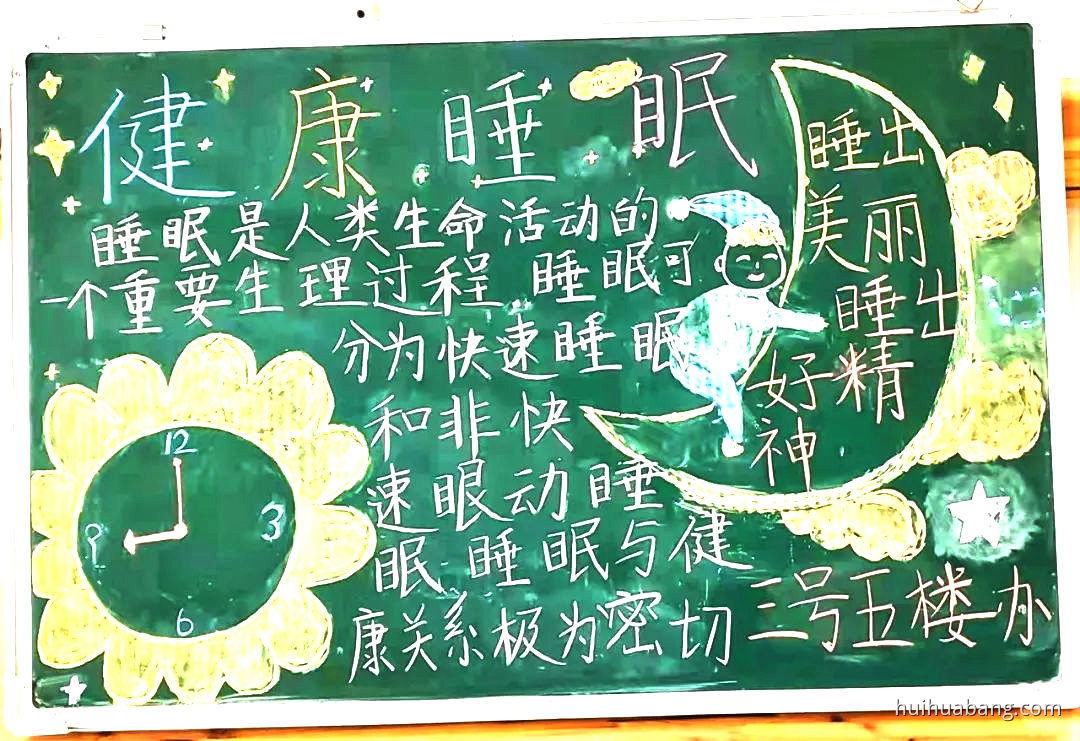 健康睡眠
睡眠是人类生命活动的
一个重要生理过程 睡眠可
分为快速睡眠
和非快
速眼动睡
眠 睡眠与健
康关系极为密切
睡出
美丽
睡出
好精
神
12
9 3
6
三号五楼办
huihuabang.com